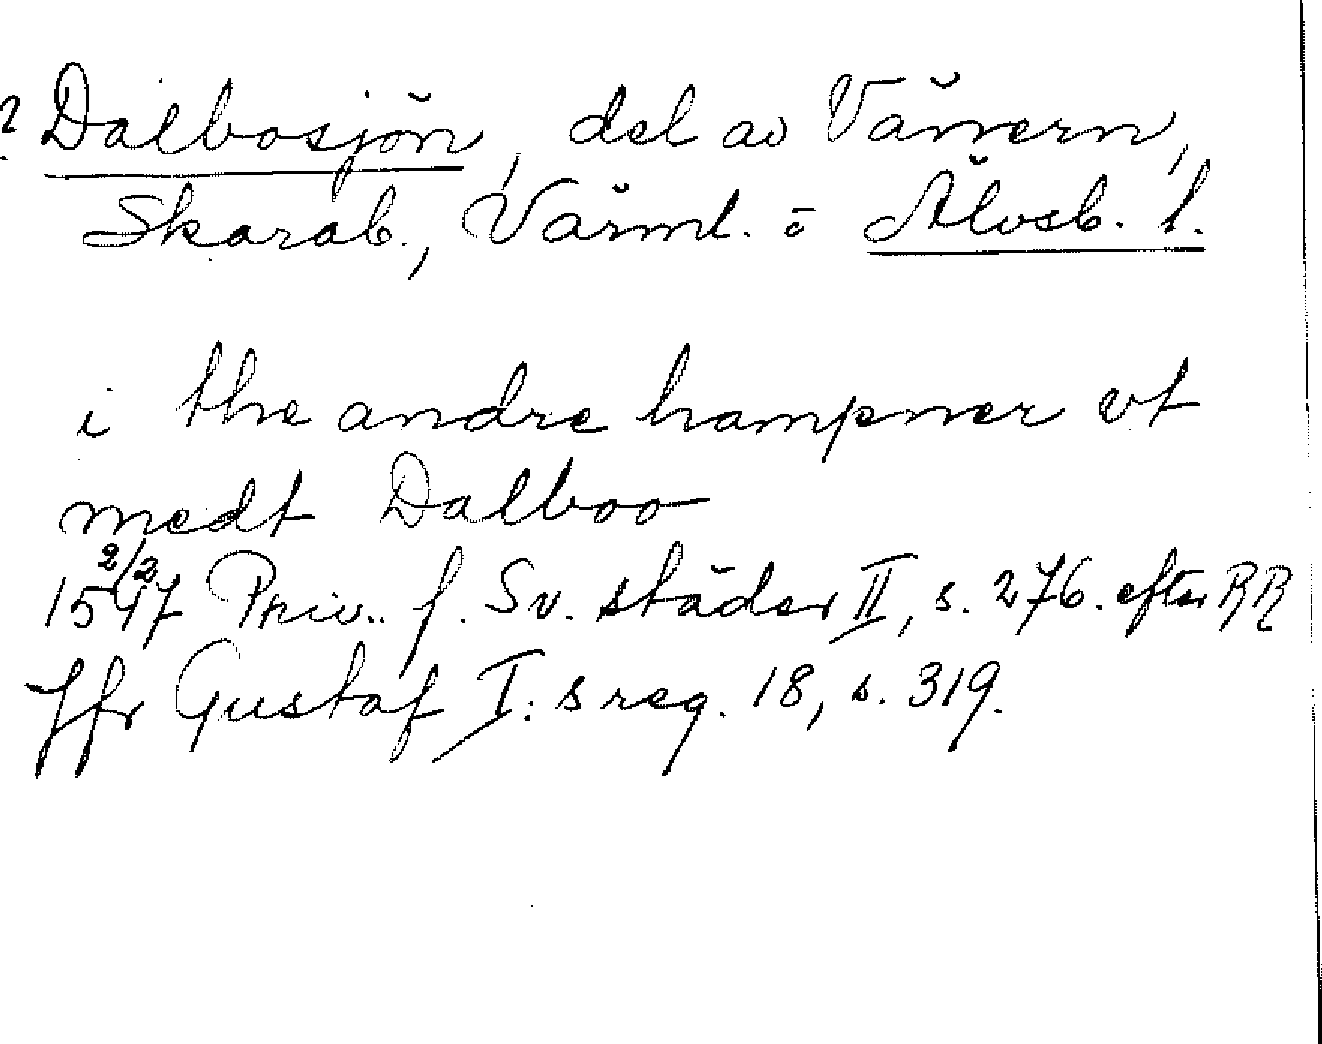 ? Dalbosjön, del av Vänern,
Skarab., Värml. o Älvsb. l.
i the andre hampner vt
medt Dalboo
1547 2/2 Priv. f. Sv. städer II, s. 276. efter RR
Jfr Gustaf I:s reg. 18, s. 319.